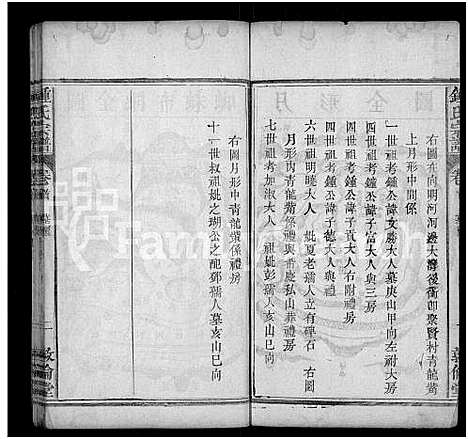 圖全形月
右圖在向明河河邊大灣後衝即聚賢村青龍嘴
上月形中間係
一世祖考鍾公諱文勝大人墓庚山甲向左祔大房
二世祖考鍾公諱子富大人與三房
三世祖考鍾公諱子貢大人右二房
四世祖考鍾公諱子德大人與禮房
六世祖明曉大人 妣夏老孺人立有碑石 右圖
月形內青龍嘴係禮與番慶私山葬禮房
七世祖考加淑大人 祖妣彭孺人亥山巳向
右圖月形中青龍嘴係禮房
十一世叔祖妣之瑚公之配鄧孺人墓亥山巳向
鍾氏宗譜
卷首
敦倫堂